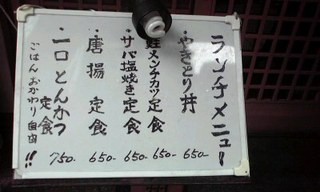 ランチメニュー
・やきとり丼 650-
メンチカツ定食 650-
・サバ塩焼き定食 650-
・唐揚定食 650-
・一口とんかつ定食 750-
ごはんおかわり自由!!